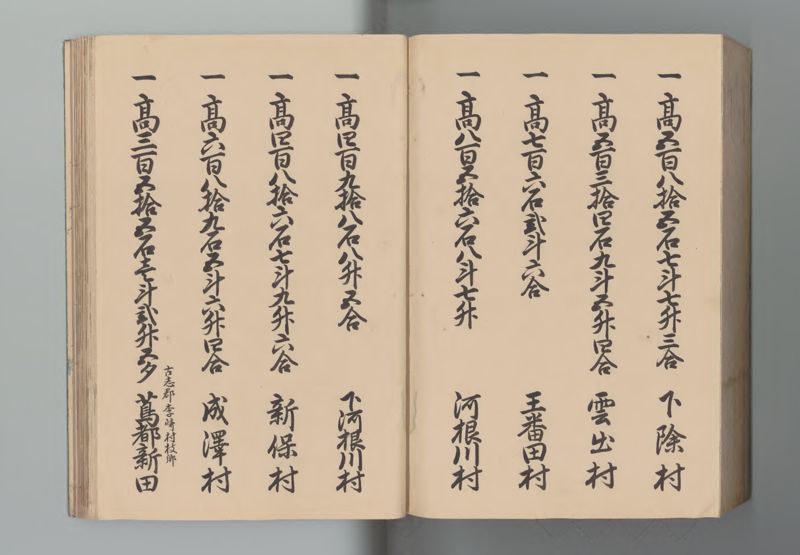 一高五百八拾五石七斗七升三合 下除村
一高五百三拾四石九斗五升四合 雲出村
一高七百六石弐斗六合 王番田村
一高八百五拾六石八斗七升 河根川村
一高四百九拾八石八升五合 下河根川村
一高四百八拾六石七斗九升六合 新保村
一高六百八拾九石五斗六升四合 成澤村
古志郡李崎村枝郷
一高三百五拾五石壱斗弐升五夕 蔦都新田